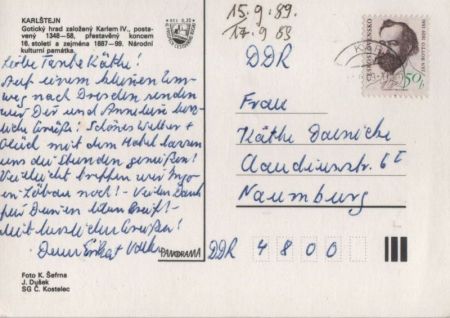 KARLŠTEJN
Gotický hrad založený Karlem IV., posta-
vený 1348–58, přestavěný koncem
16. století a zejména 1887–99. Národní
kulturní památka.
Liebe Tante Käthe!
Auf einem kleinen Um-
weg nach Dresden senden
wir Dir und Annelie herz-
liche Grüße! Schönes Wetter +
Glück mit dem Hotel lassen
uns die Stunden genießen!
Vielleicht treffen wir Ingo
en Löbau noch! – Vielen Dank
für Deinen lieben Brief! –
Mit herzlichen Grüßen!
Deine
PANORAMA
Foto K. Šefrna
J. Dušek
SG Č. Kostelec
15.9.89.
17.9.89
DDR
Frau
Käthe
Claudiusstr. 6
Naumburg
DDR 4800
ČESKOSLOVENSKO
JAN BOTTO 1829-1881
50h